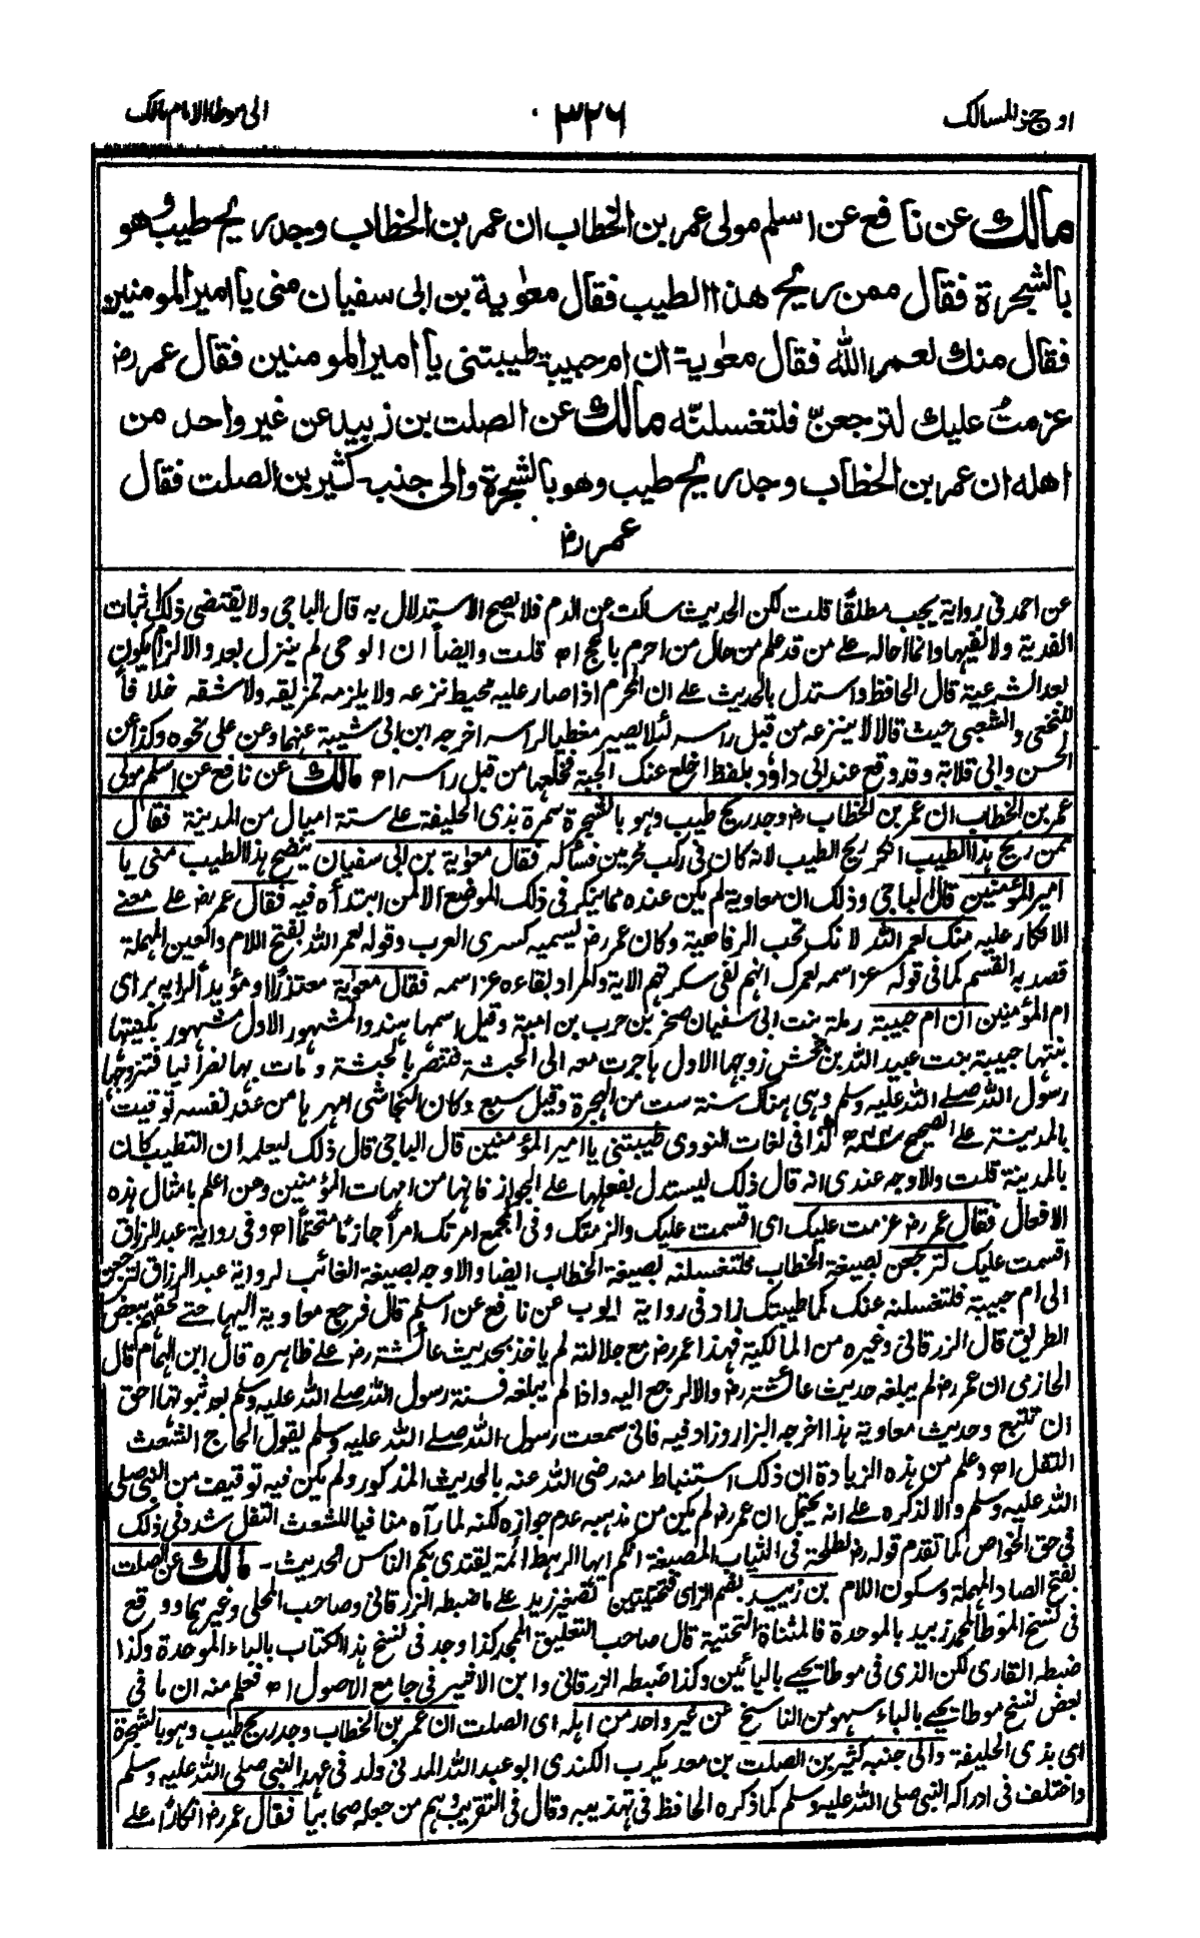 اوجز المسالك ٣٢٦ الى موطا الامام مالك
مالك عن نافع عن اسلم مولى عمر بن الخطاب ان عمر بن الخطاب وجد ريح طيب وهو
بالشجرة فقال ممن ريح هذا الطيب فقال معٰوية بن ابى سفيان منى يا امير المومنين
فقال منك لعمر الله فقال معٰوية ان ام حبيبة طيبتنى يا امير المومنين فقال عمر رض
عزمتُ عليك لترجعنّ فلتغسلنّه مالك عن الصلت بن زبيد عن غير واحد من
اهله ان عمر بن الخطاب وجد ريح طيب وهو بالشجرة والى جنبه كثير بن الصلت فقال
عمر رض
عن احمد فى رواية يجب مطلقًا قلت لكن الحديث ساكت عن الدم فلا يصح الاستدلال به قال الباجى ولا يقتضى ذلك اثبات
الفدية ولا نفيها وانما احاله على من قد علم من حال من احرم بالحج اھ قلت وايضاً ان الوحى لم ينزل بعد والالزام يكون
بعد الشرعية قال الحافظ واستدل بالحديث على ان المحرم اذا صار عليه محيط نزعه ولا يلزمه تمزيقه ولا شقه خلافاً
للنخعى والشعبى حيث قالا لا ينزعه من قبل راسه لئلا يصير مغطيا لراسه اخرجه ابن ابى شيبة عنهما وعن على نحوه وكذا عن
الحسن وابى قلابة وقد وقع عند ابى داود بلفظ اخلع عنك الجبة فخلعها من قبل راسه اھ مالك عن نافع عن اسلم مولى
عمر بن الخطاب ان عمر بن الخطاب رض وجد ريح طيب وهو بالشجرة سمرة بذى الحليفة على ستة اميال من المدينة فقال
ممن ريح هذا الطيب انكر ريح الطيب لانه كان فى ركب محرمين فسأله فقال معٰوية بن ابى سفيان ينضح هذا الطيب منى يا
امير المؤمنين قال الباجى وذلك ان معاوية لم يكن عنده مما ينكر فى ذلك الموضع الا لمن ابتدأه فيه فقال عمر رض على معنى
الانكار عليه منك لعمر الله لانك تحب الرفاهية وكان عمر رض يسميه كسرى العرب وقوله لعمر الله بفتح اللام والعين المهملة
قصد به القسم كما فى قوله عز اسمه لعمرك انهم لفى سكرتهم الاية والمراد بقاءه عز اسمه فقال معٰوية معتذرًا او مؤيداً لرايه براى
ام المؤمنين ان ام حبيبة رملة بنت ابى سفيان صخر بن حرب بن امية وقيل اسمها هند والمشهور الاول مشهور بكنيتها
بنتها حبيبة بنت عبيد الله بن جحش زوجها الاول هاجرت معه الى الحبشة فتنصر بالحبشة ومات بها نصرانيا فتزوجها
رسول الله صلى الله عليه وسلم وهى هناك سنة ست من الهجرة وقيل سبع وكان النجاشى امهرها من عند نفسه توفيت
بالمدينة على الصحيح كذا فى لغات النووى طيبتنى يا امير المؤمنين قال الباجى قال ذلك ليعلمه ان التطيب كان
بالمدينة قلت والاوجه عندى انه قال ذلك ليستدل بفعلها على الجواز فانها من امهات المؤمنين ومن اعلم بامثال هذه
الافعال فقال عمر رض عزمت عليك اى اقسمت عليك والزمتك وفى المجمع امرتك امرًا جازمًا متحتماً اھ وفى رواية عبد الرزاق
اقسمت عليك لترجعن بصيغة الخطاب فلتغسلنه بصيغة الخطاب ايضا والاوجه بصيغة الغائب لرواية عبد الرزاق لترجعن
الى ام حبيبة فلتغسلنه عنك كما طيبتك زاد فى رواية ايوب عن نافع عن اسلم قال فرجع معاوية اليها حتى لحقهم ببعض
الطريق قال الزرقانى وغيره من المالكية فهذا عمر رض مع جلالته لم ياخذ بحديث عائشة رض على ظاهره قال ابن الهمام قال
الحازمى ان عمر رض لم يبلغه حديث عائشة رض والا لرجع اليه واذا لم يبلغه فسنة رسول الله صلى الله عليه وسلم بعد ثبوتها احق
ان تتبع وحديث معاوية هذا اخرجه البزار وزاد فيه فانى سمعت رسول الله صلى الله عليه وسلم يقول الحاج الشعث
التفل اھ وعلم من هذه الزيادة ان ذلك استنباط منه رضى الله عنه بالحديث المذكور ولم يكن فيه توقيت من النبى صلى
الله عليه وسلم والا لذكره على انه يحتمل ان عمر رض لم يكن من مذهبه عدم جوازه لكنه لما رآه منافيا للشعث التفل شدد فى ذلك
فى حق الخواص كما تقدم قوله رض لطلحة فى الثياب المصبغة انكم ايها الرهط ائمة يقتدى بكم الناس الحديث - مالك عن الصلت
بفتح الصاد المهملة وسكون اللام بن زبيد بضم الزاى فتحيتين تصغير زيد على ما ضبطه الزرقانى وصاحب المحلى وغيرهما ووقع
فى نسخ الموطا لمحمد زبيد بالموحدة فالمثناة التحتية قال صاحب التعليق الممجد كذا وجد فى نسخ هذا الكتاب بالباء الموحدة وكذا
ضبطه القارى لكن الذى فى موطا يحيى باليائين وكذا ضبطه الزرقانى وابن الاثير فى جامع الاصول اھ فعلم منه ان ما فى
بعض نسخ موطا يحيى بالباء سهو من الناسخ عن غير واحد من اهله اى الصلت ان عمر بن الخطاب وجد ريح طيب وهو بالشجرة
اى بذى الحليفة والى جنبه كثير بن الصلت بن معديكرب الكندى ابو عبد الله المدنى ولد فى عهد النبى صلى الله عليه وسلم
واختلف فى ادراكه النبى صلى الله عليه وسلم كما ذكره الحافظ فى تهذيبه وقال فى التقريب وهم من جعله صحابيًا فقال عمر رض انكارًا على